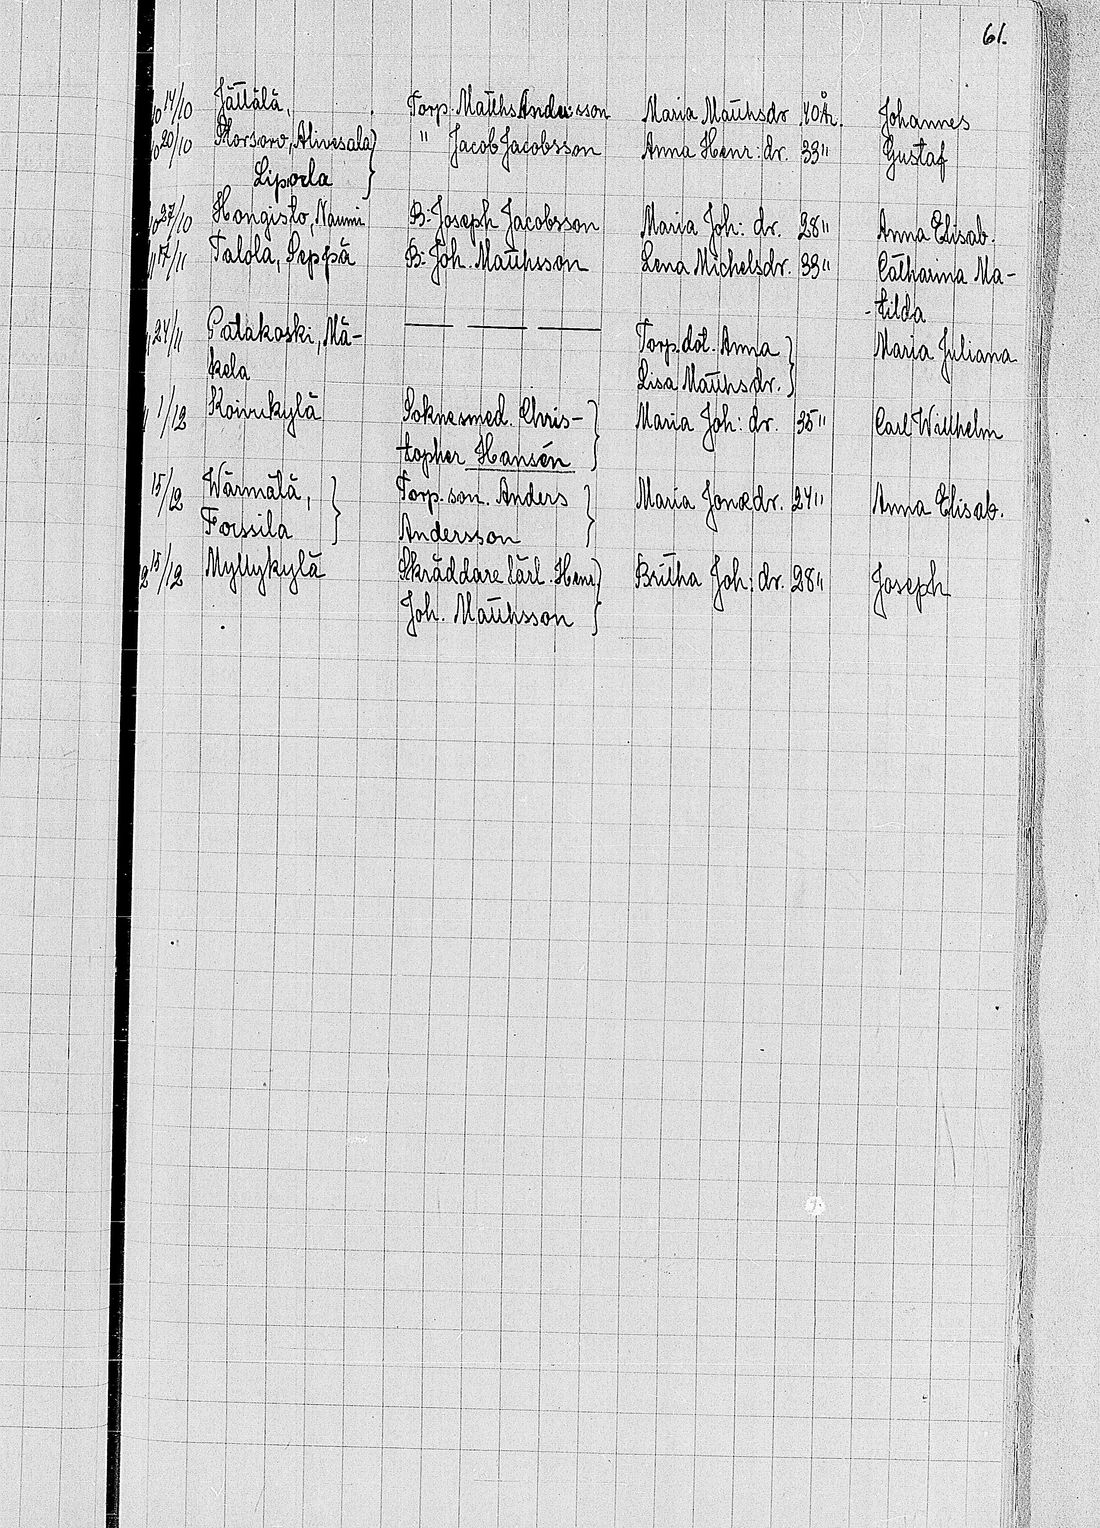 61.
14/10 Jättälä, Torp. Matths Andersson Maria Matthsdr 40 År. Johannes
20/10 Storsaro, Alivesala } " Jacob Jacobsson Anna Henr: dr. 33 " Gustaf
Lipola
27/10 Hongisto, Naumi B: Joseph Jacobsson Maria Joh: dr. 28 " Anna Elisab.
17/11 Talola, Seppä B: Joh. Matthsson Lena Michelsdr. 33 " Catharina Ma-
-tilda
24/11 Patakoski, Mä- — — — Torp. dot. Anna } Maria Juliana
kela Lisa Matthsdr.
1/12 Koivukylä Soknesmed. Chris- } Maria Joh: dr. 35 " Carl Willhelm
topher Hansén
15/12 Wärmälä, } Torp. son. Anders } Maria Jonædr. 24 " Anna Elisab.
Forssila Andersson
15/12 Myllykylä Skräddare lärl. Henr } Britha Joh: dr. 28 " Joseph
Joh. Matthsson